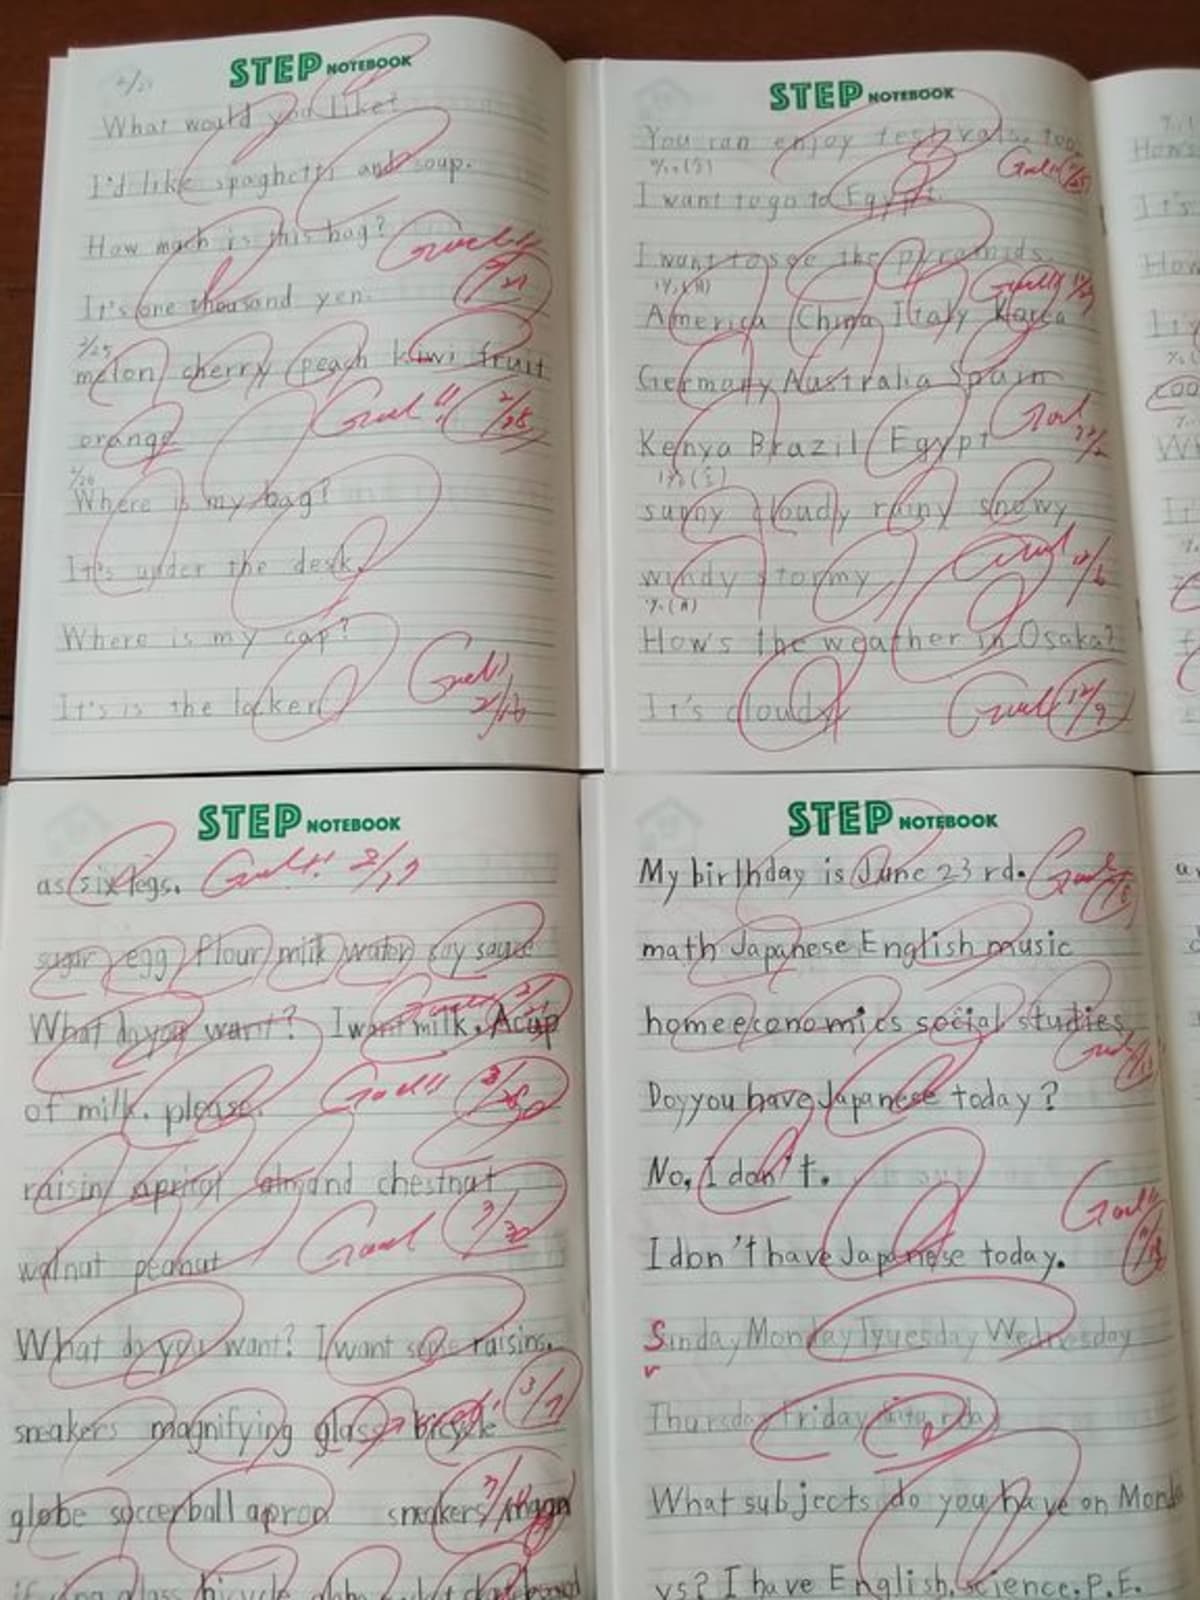 STEP NOTEBOOK
2/21
What would you like?
I'd like spaghetti and soup.
How mach is this bag?
Good!!
It's one thousand yen.
2/21
2/25
melon cherry peach kiwi fruit
Good!! 2/28
orange
Where is my bag?
It's under the desk.
Where is my cap?
Good!
It's is the locker
STEP NOTEBOOK
You can enjoy festivals, too.
Good!
I want to go to Egypt.
I want to see the pyramids.
Good!!
America China Italy Korea
Germany Australia Spain
Good
Kenya Brazil Egypt
sunny cloudy rainy snowy
Good 12/6
windy stormy
How's the weather in Osaka?
It's cloudy
Good! 12/9
STEP NOTEBOOK
as six legs. Good!! 2/17
sugar egg flour milk water soy sauce
What do you want? I want milk. A cup
of milk, please. Good!!
raisin apricot almond chestnut
walnut peanut Good 3/30
What do you want? I want some raisins.
3/7
sneakers magnifying glass bicycle
globe soccerball apron sneakers magn
ifying glass bicycle
STEP NOTEBOOK
My birthday is June 23rd. Good
math Japanese English music
home economics social studies
Good
Doyyou have Japanese today?
No, I don't.
Good!!
I don't have Japanese today.
Sinday Monday Tyuesday Wednesday
Thursday Friday
What subjects do you have on Monda
ys? I have English, science, P.E.